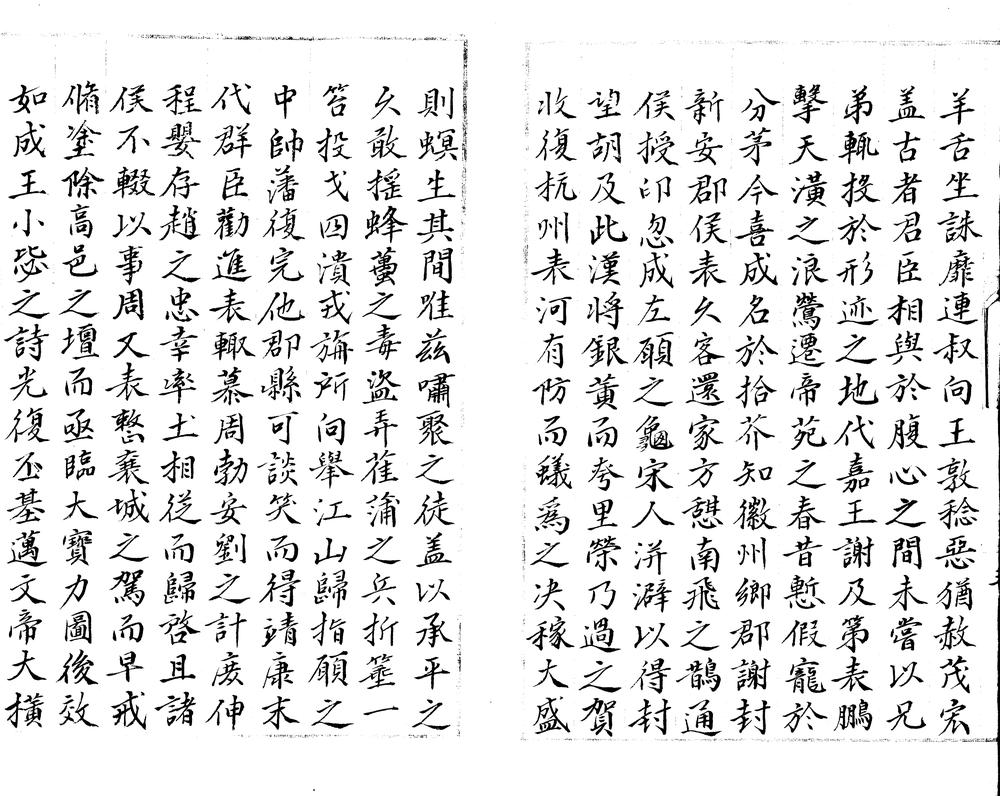 羊舌坐誅靡連叔向王敦稔惡猶赦茂宏
盖古者君臣相與於腹心之間未嘗以兄
弟輒投於形迹之地代嘉王謝及第表鵬
擊天潢之浪鶯遷帝苑之春昔慙假寵於
分茅今喜成名於拾芥知徽州鄉郡謝封
新安郡侯表久客還家方憇南飛之鵲通
侯授印忽成左顧之龜宋人洴澼以得封
望胡及此漢將銀黄而夸里榮乃過之賀
收復杭州表河有防而蟻爲之决稼大盛
則螟生其間唯兹嘯聚之徒盖以承平之
久敢摇蜂蠆之毒盜弄萑蒲之兵折箠一
笞投戈四潰戎旃所向舉江山歸指顧之
中帥藩復完他郡縣可談笑而得靖康末
代群臣勸進表輙慕周勃安劉之計庻伸
程嬰存趙之忠幸率土相從而歸啓且諸
侯不輟以事周又表慗襄城之駕而早戒
脩塗除高邑之壇而亟臨大寶力圖後效
如成王小毖之詩光復丕基邁文帝大橫